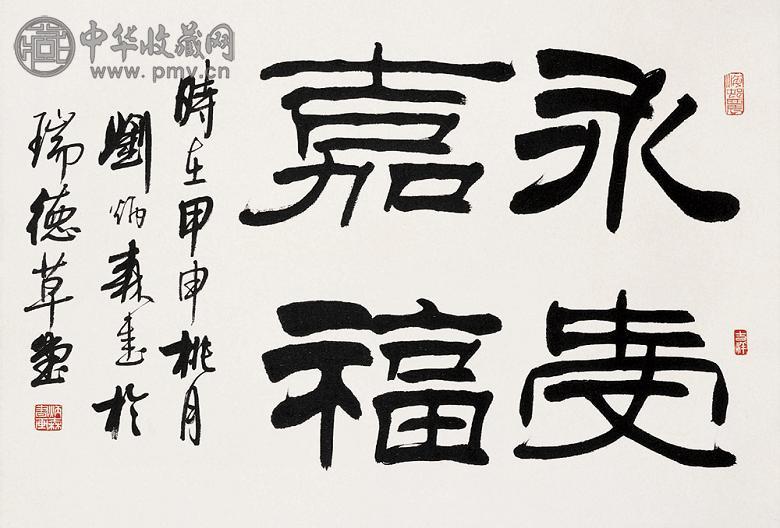 永受
嘉福
時在甲申桃月
劉炳森書於
瑞德草堂
吉祥
中华收藏网
www.pmv.cn